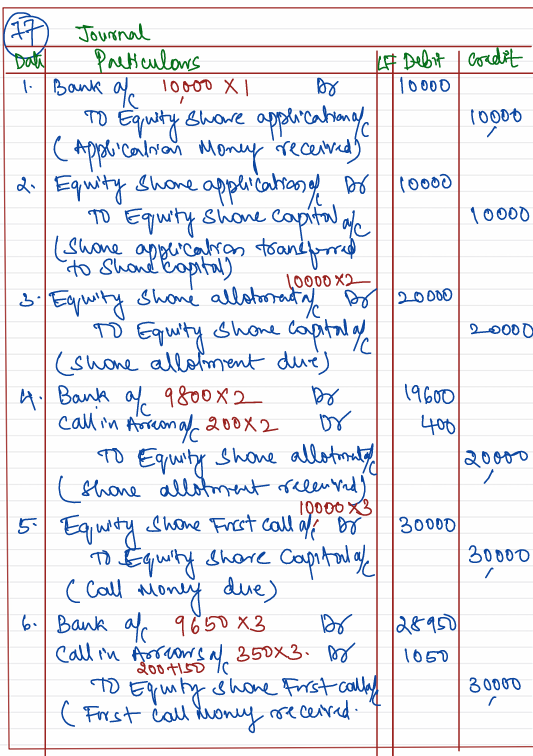 77 Journal
Date Particulars LF Debit Credit
1. Bank a/c 10,000 X 1 Dr 10000
TO Equity Share application a/c 10000
(Application Money received)
2. Equity Share application a/c Dr 10000
TO Equity Share Capital a/c 10000
(Share application transferred
to Share Capital)
10000 X 2
3. Equity Share allotment a/c Dr 20000
TO Equity Share Capital a/c 20000
(Share allotment due)
4. Bank a/c 9800 X 2 Dr 19600
Call in Arrear a/c 200 X 2 Dr 400
TO Equity Share allotment a/c 20000
(Share allotment received)
10000 X 3
5. Equity Share First call a/c Dr 30000
TO Equity Share Capital a/c 30000
(Call Money due)
6. Bank a/c 9650 X 3 Dr 28950
Call in Arrears a/c 350 X 3. Dr 1050
200 + 150
TO Equity Share First call a/c 30000
(First call Money received.